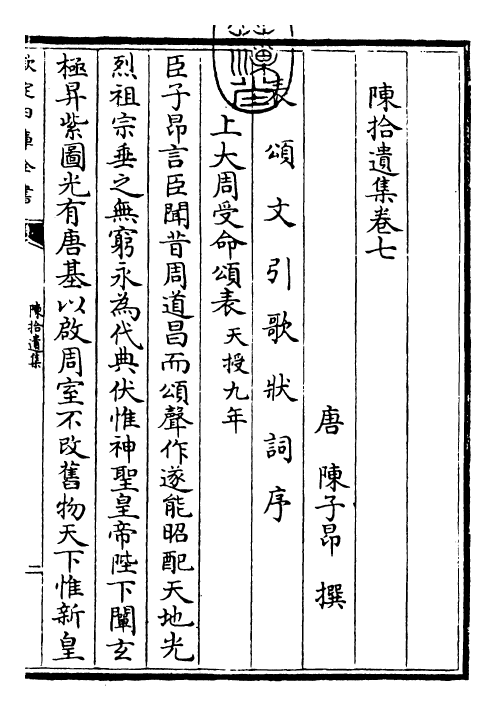 陳拾遺集卷七
唐 陳子昂 撰
表 頌 文 引 歌 狀 詞 序
上大周受命頌表天授九年
臣子昂言臣聞昔周道昌而頌聲作遂能昭配天地光
烈祖宗垂之無窮永為代典伏惟神聖皇帝陛下闡玄
極昇紫圖光有唐基以啟周室不改舊物天下惟新皇
欽定四庫全書
陳拾遺集